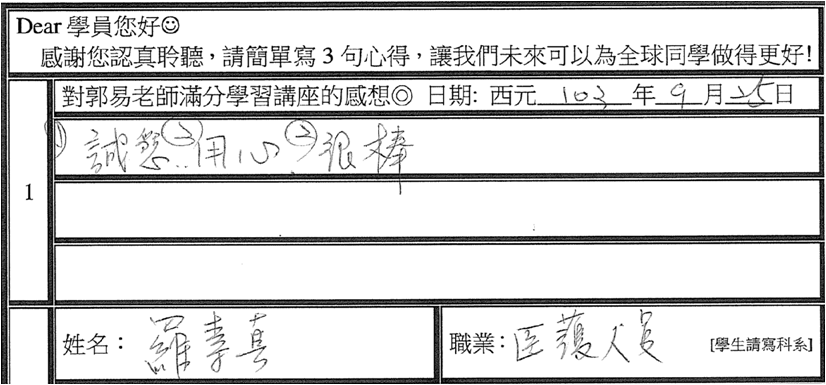 Dear 學員您好☺
感謝您認真聆聽，請簡單寫 3 句心得，讓我們未來可以為全球同學做得更好!
對郭易老師滿分學習講座的感想◎ 日期: 西元 103 年 9 月 25 日
1
① 誠懇 ② 用心 ③ 很棒
姓名： 羅 真
職業： 医護人員 [學生請寫科系]